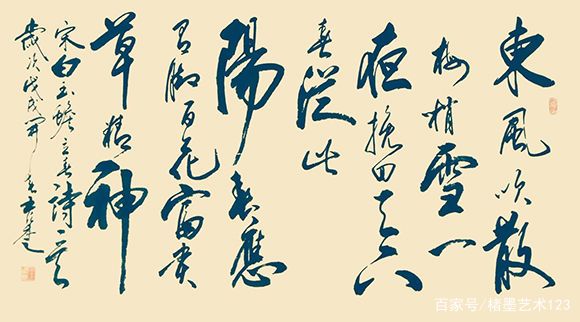 東風吹散
梅梢雪一
夜挽回天下
春從此
陽春應
有脚百花富貴
草精神
宋白玉蟾立春詩一首
歲次戊戌年
百家号/楮墨艺术123